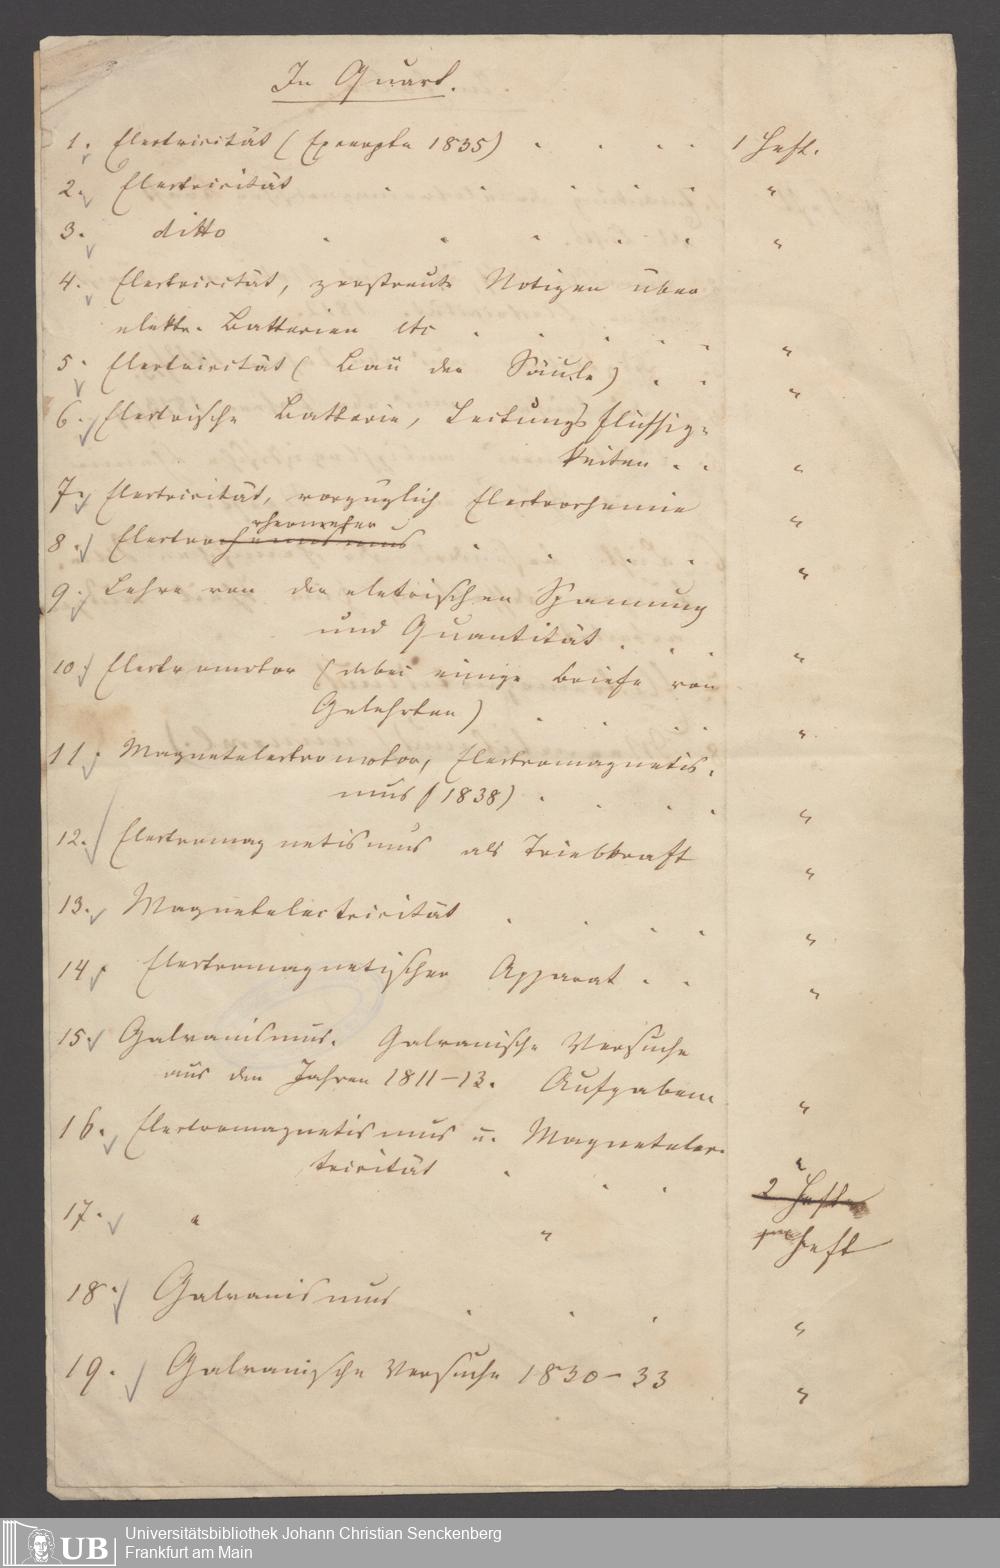 In Quart.
1. Electricität (Excerpte 1835) . . . . 1 Heft.
2. Electricität . . . . . "
3. ditto . . . . . "
4. Electricität, zerstreute Notizen über
elektr. Batterien etc . . . . . "
5. Electricität (Bau der Säule) . . "
6. Electrische Batterie, Leitungsflüssig-
keiten . . "
7. Electricität, vorzüglich Electrochemie "
8. Electrochemismus . . . . "
9. Lehre von der eletrischen Spannung
und Quantität . . . "
10. Electromotor (dabei einige Briefe von
Gelehrten) . . . . "
11. Magnetelectromotor, Electromagnetis-
mus (1838) . . . . "
12. Electromagnetismus als Triebkraft "
13. Magnetelectricität . . . . "
14. Electromagnetischer Apparat . . "
15. Galvanismus. Galvanische Versuche
aus den Jahren 1811-13. Aufgaben. "
16. Electromagnetismus u. Magnetelec-
tricität . . . "
2 Hefte
17. " " Heft
18. Galvanismus . . . "
19. Galvanische Versuche 1830-33 "
UB
Universitätsbibliothek Johann Christian Senckenberg
Frankfurt am Main